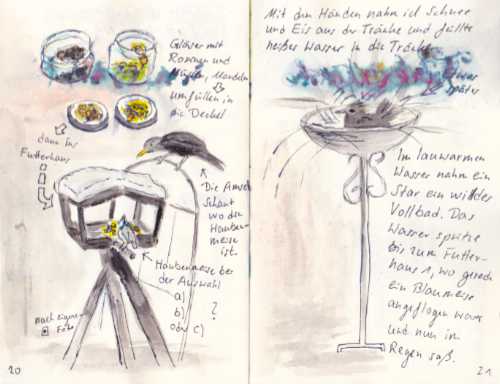 Gläser mit
Rosinen und
Nüssen, Mandeln
umfüllen in
die Deckel
dann ins
Futterhaus
Die Amsel
schaut
wo die
Hauben-
meise
ist.
Haubenmeise bei
der Auswahl
a)
b) ?
oder c)
nach eigener
20
Mit den Händen nahm ich Schnee
und Eis aus der Tränke und füllte
heißes Wasser in die Tränke
etwas
später
Im lauwarmen
Wasser nahm ein
Star ein wildes
Vollbad. Das
Wasser spritzte
bis zum Futter-
haus 1, wo gerade
ein Blaumeise
angeflogen war
und nun im
Regen saß.
21